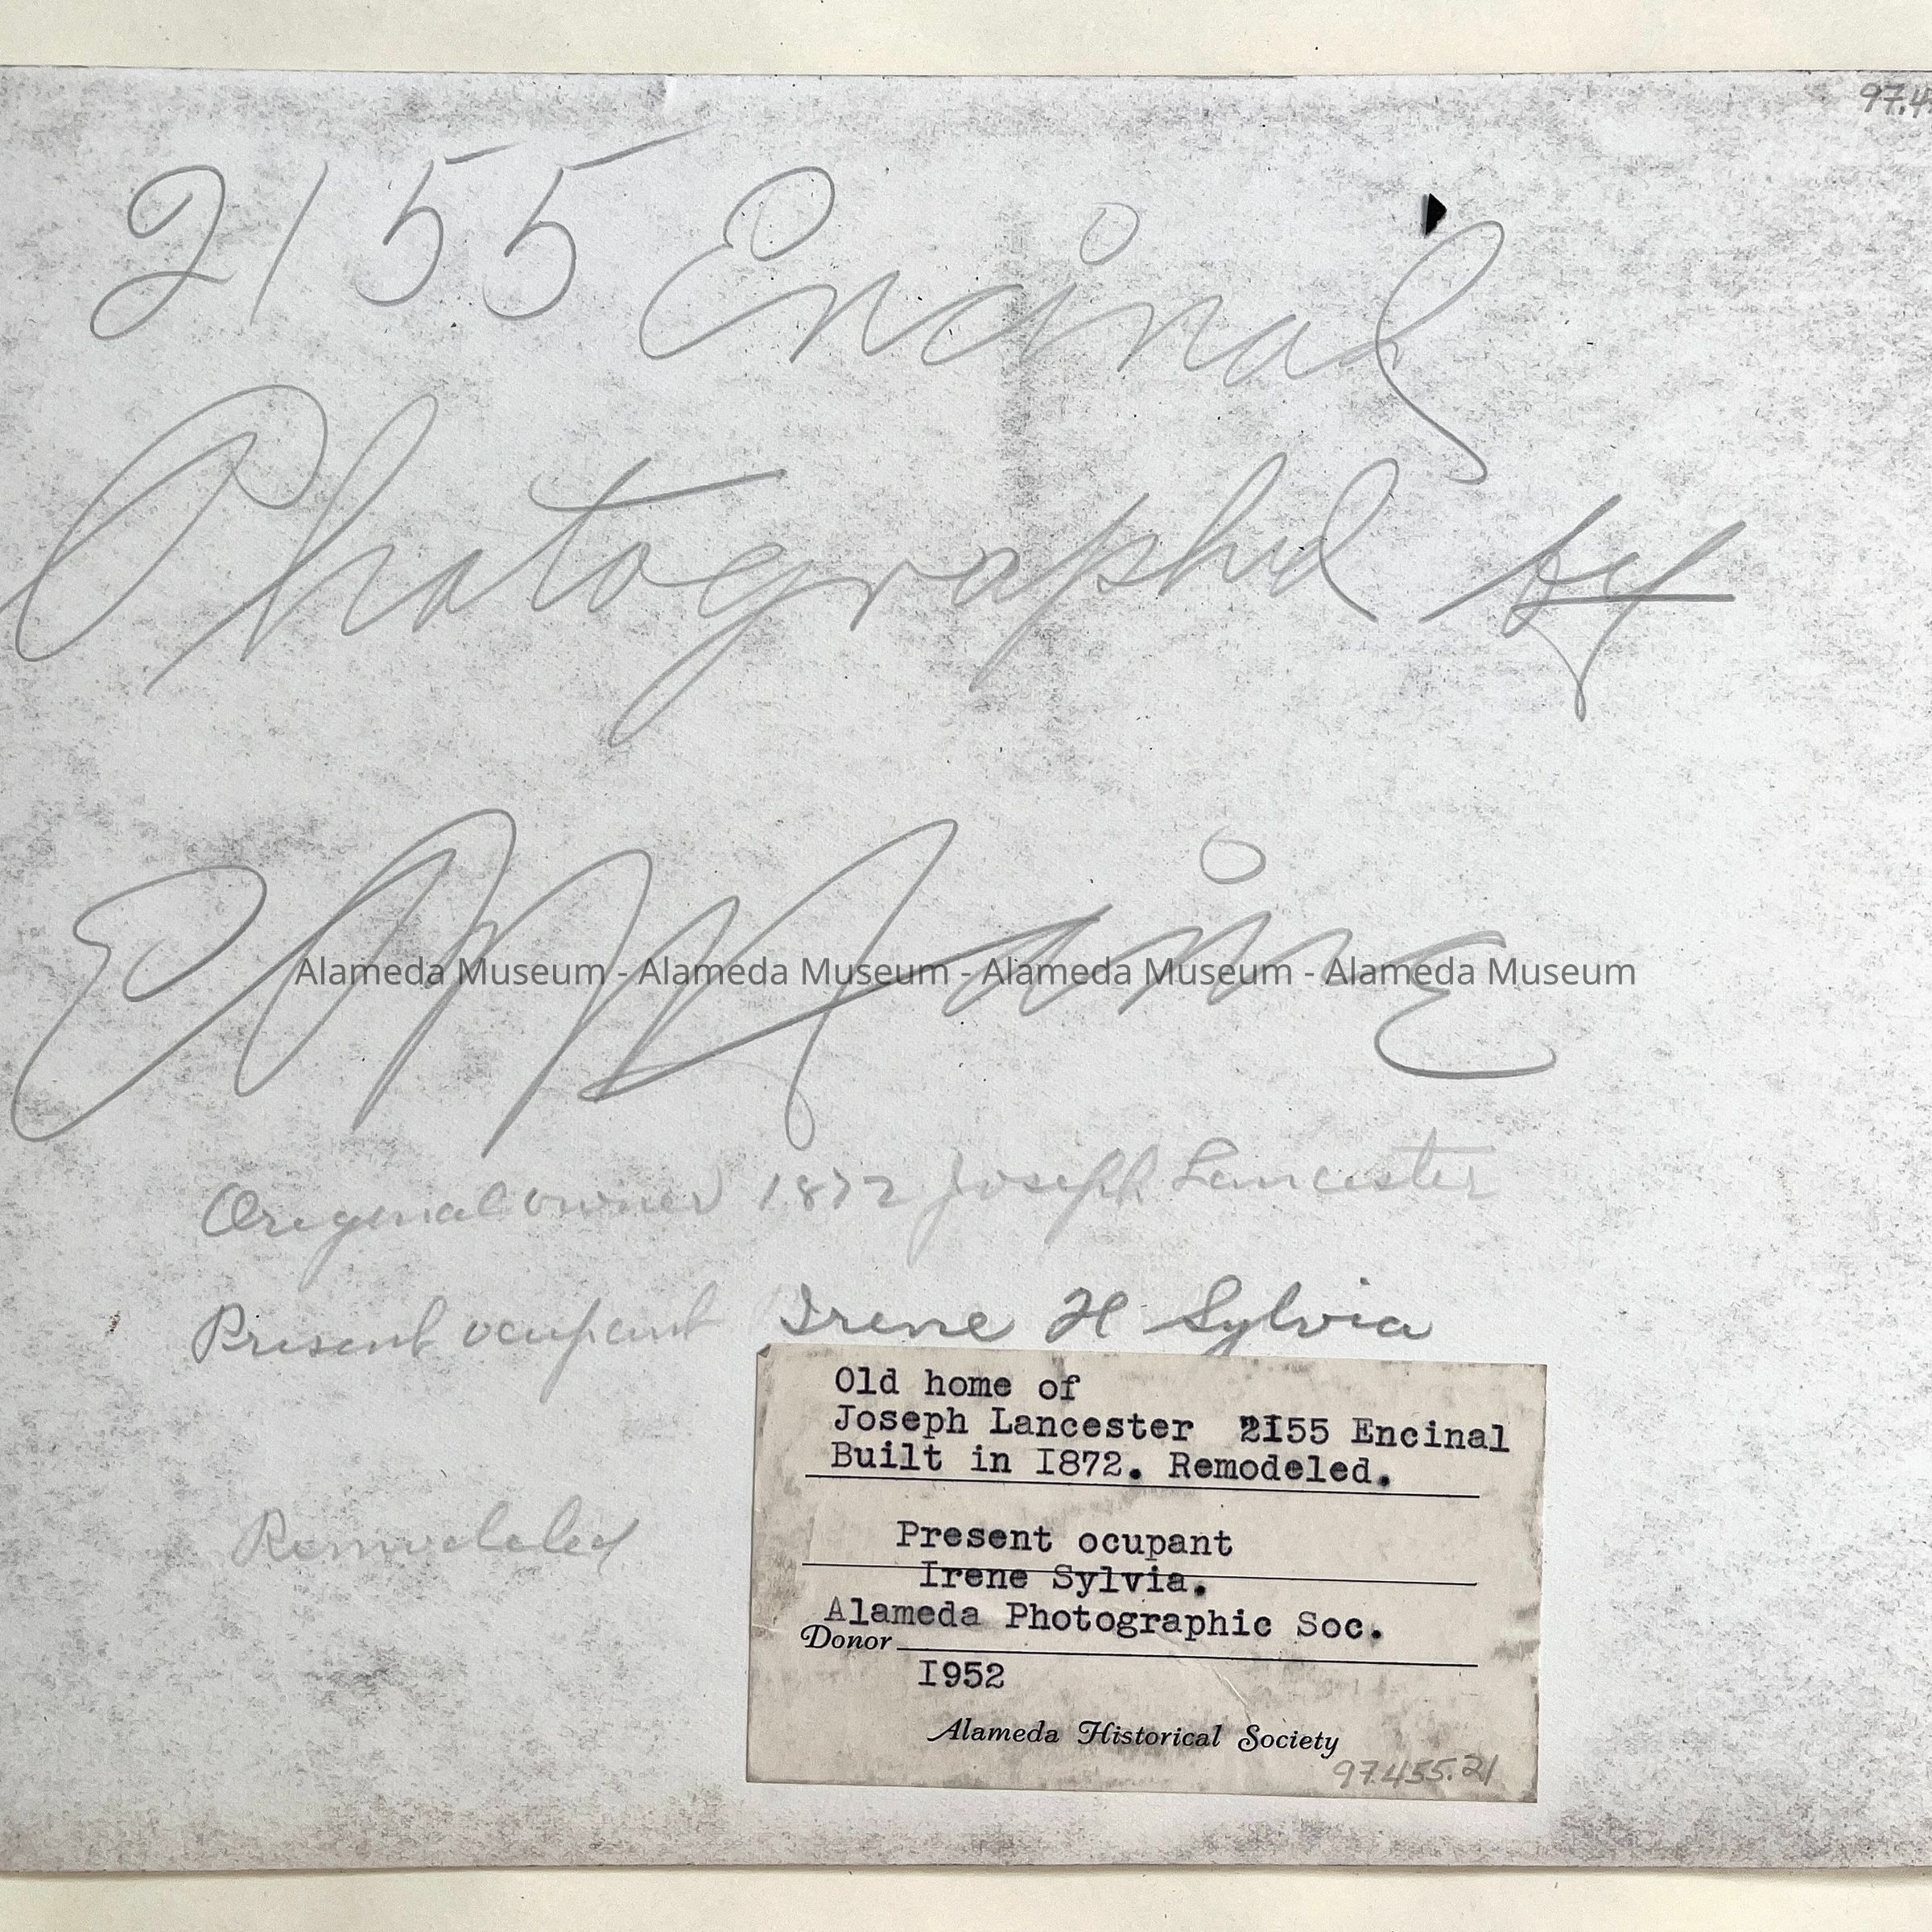 97.4
2155 Encinal
Photographed by
Alameda Museum - Alameda Museum - Alameda Museum - Alameda Museum
Original owner 1872 Joseph Lancester
Present ocupant Irene H Sylvia
Old home of
Joseph Lancester 2I55 Encinal
Built in I872. Remodeled.
Remodeled
Present ocupant
Irene Sylvia.
Alameda Photographic Soc.
Donor
I952
Alameda Historical Society
97.455.21